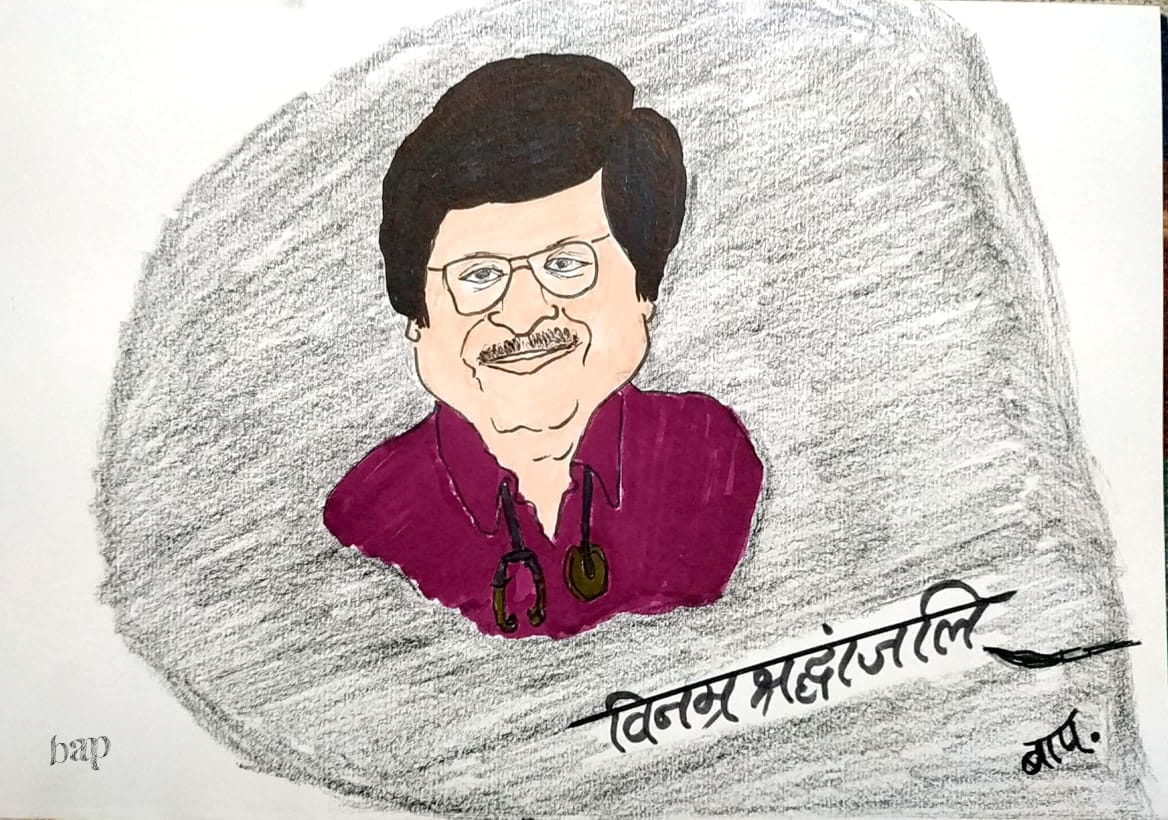 विनम्र श्रद्धांजलि
बाप.
bap